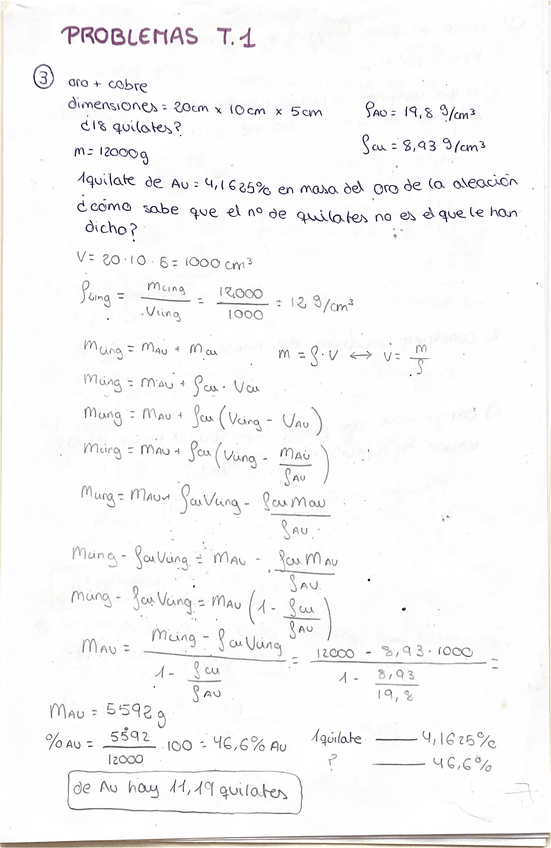 PROBLEMAS T.1
③ oro + cobre
dimensiones = 20cm x 10cm x 5cm ρAu = 19,8 g/cm³
¿18 quilates? ρcu = 8,93 g/cm³
m = 12000g
1quilate de Au = 4,1625% en masa del oro de la aleación
¿cómo sabe que el nº de quilates no es el que le han
dicho?
V = 20·10·5 = 1000 cm³
ρling = mling / Vling = 12000 / 1000 = 12 g/cm³
mling = mAu + mcu m = ρ·V ↔ V = m/ρ
mling = mAu + ρcu · Vcu
mling = mAu + ρcu (Vling - VAu)
mling = mAu + ρcu (Vling - mAu/ρAu)
mling = mAu + ρcuVling - ρcu mAu / ρAu
mling - ρcuVling = mAu - ρcu mAu / ρAu
mling - ρcuVling = mAu (1 - ρcu/ρAu)
mAu = (mling - ρcuVling) / (1 - ρcu/ρAu) = (12000 - 8,93·1000) / (1 - 8,93/19,8) =
mAu = 5592g
%Au = 5592/12000 · 100 = 46,6% Au 1quilate — 4,1625%
? — 46,6%
de Au hay 11,19 quilates